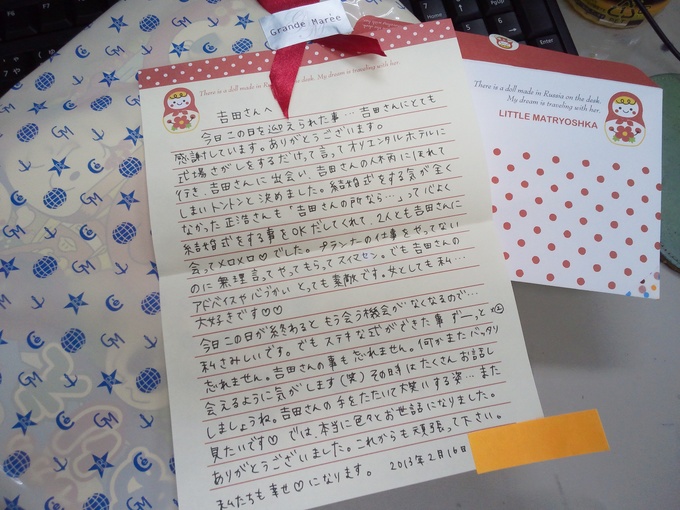 Grande Marée
There is a doll made in Russia on the desk. My dream is traveling with her.
吉田さんへ
今日この日を迎えられた事… 吉田さんにとても
感謝しています。ありがとうございます。
式場さがしをするだけって言ってオリエンタルホテルに
行き、吉田さんに出会い、吉田さんの人柄にほれて
しまいトントンと決めました。結婚式をする気が全く
なかった正浩さんも「吉田さんの所なら…」って心よく
結婚式をする事をOKだしてくれて、2人とも吉田さんに
会ってメロメロ♡でした。プランナーの仕事をやってない
のに無理言ってやってもらってスイマセン。でも吉田さんの
アドバイスや心づかいとっても素敵です。女としても私…
大好きです♡♡
今日この日が終わると もう会う機会がなくなるので…
私さみしいです。でもステキな式ができた事ずーっと×②
忘れません。吉田さんの事も忘れません。何かまたバッタリ
会えるように気がします(笑)その時はたくさんお話し
しましょうね。吉田さんの手をたたいて大笑いする姿…また
見たいです♡ では、本当に色々とお世話になりました。
ありがとうございました。これからも頑張って下さい。
私たちも幸せ♡になります。 2013年2月16日
There is a doll made in Russia on the desk.
My dream is traveling with her.
LITTLE MATRYOSHKA
GM
Home
End
Enter